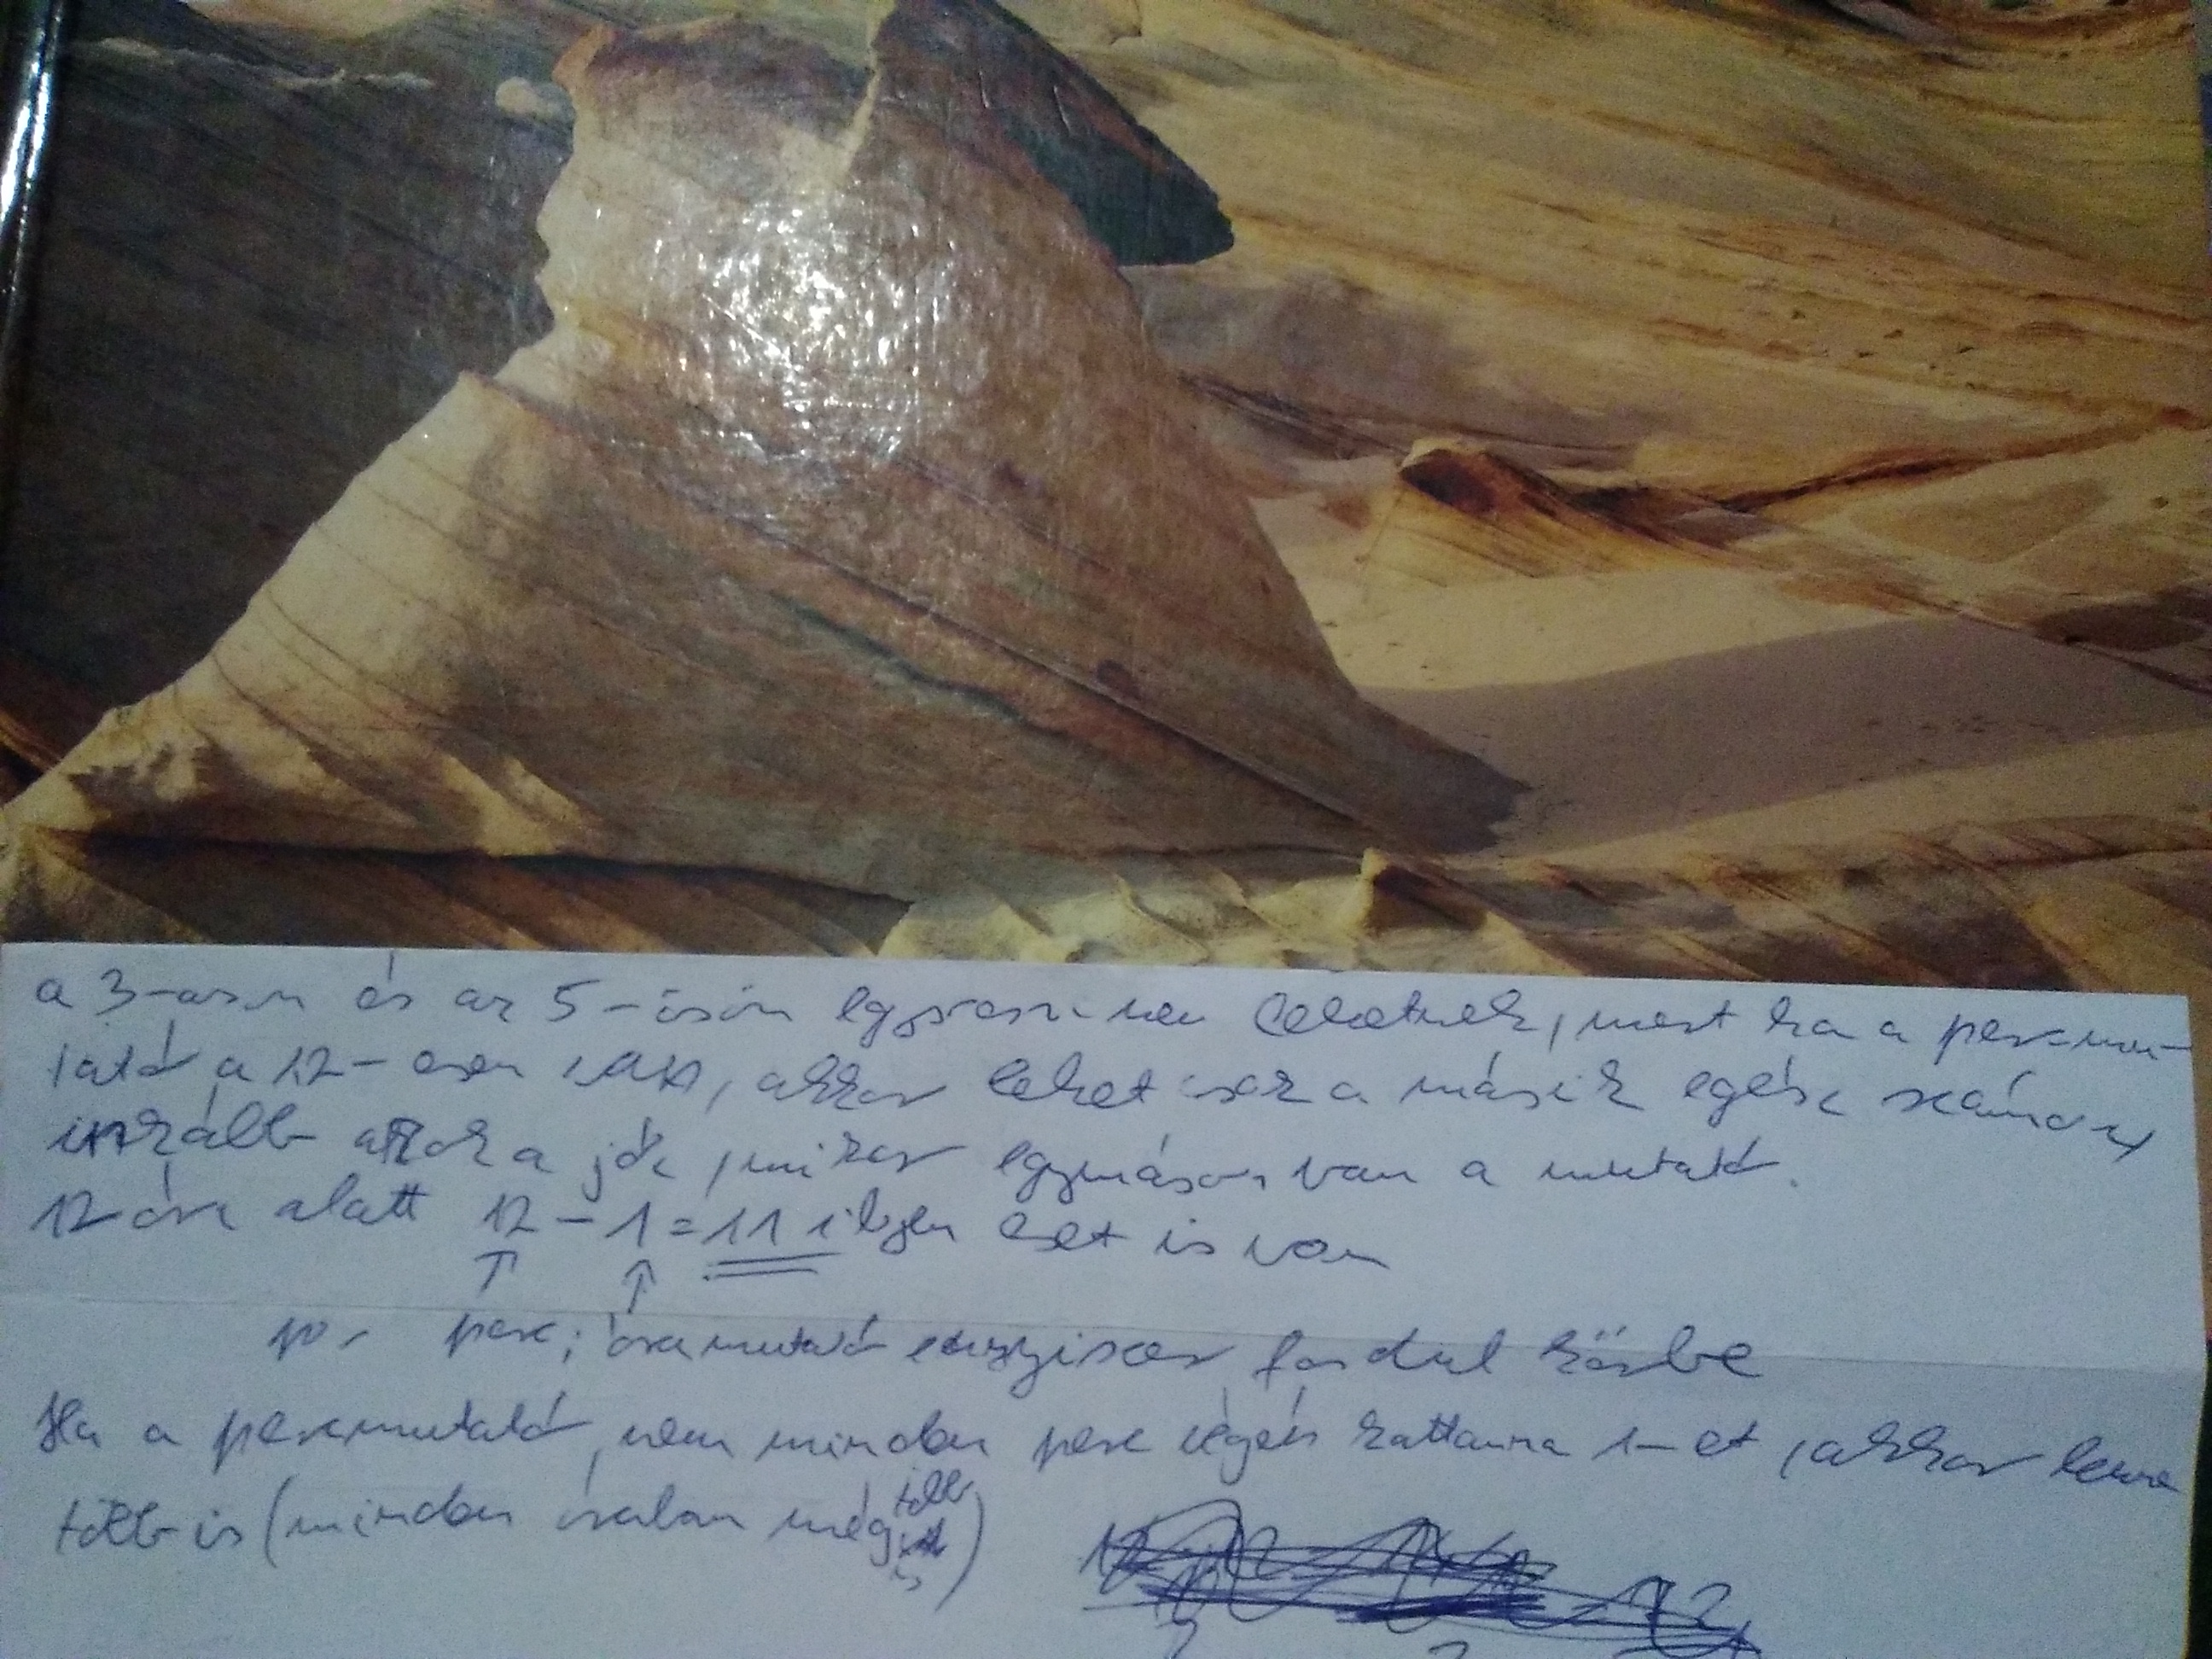 a 3-asin és az 5-ösön egyszerre nem lehetnek, mert ha a percmu-
tató a 12-esen áll, akkor lehet csak a másik egész számon
inkább azok a jók, mikor egymáson van a mutató.
12 óra alatt 12 - 1 = 11 ilyen eset is van
↑ ↑
perc; óramutató egyszer fordul körbe
Ha a percmutató nem minden perc végén kattanna 1-et, akkor lenne
több is (minden órában még több is)